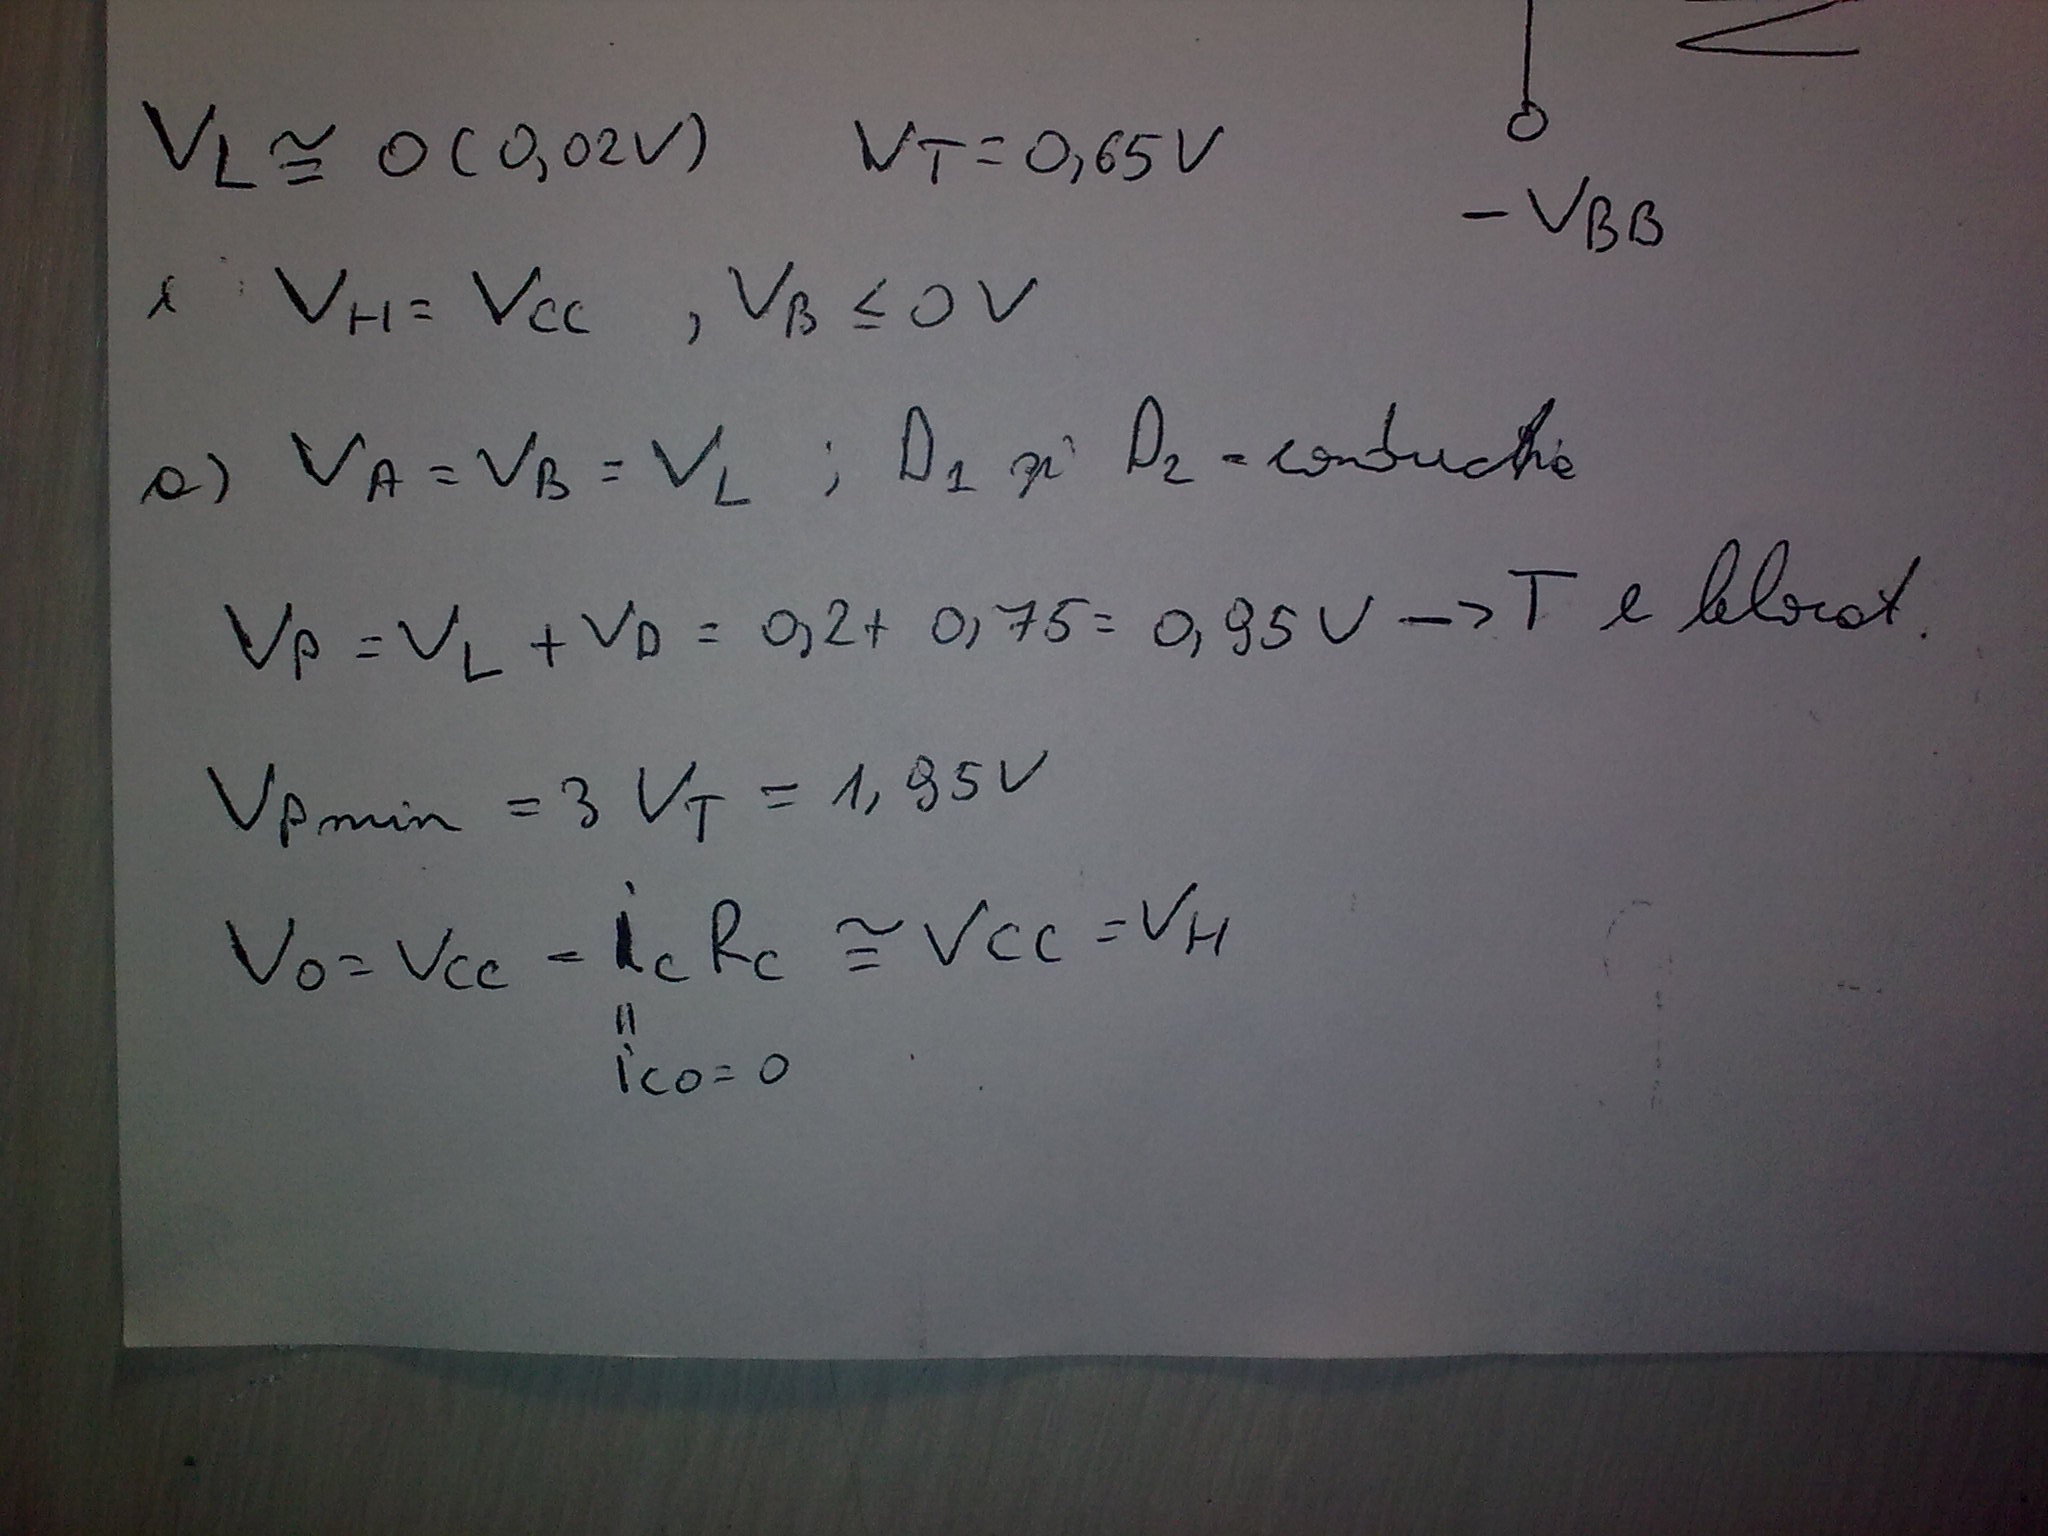 VL ≅ 0 (0,02V) VT = 0,65V
-VBB
VH = VCC , VB ≤ 0V
a) VA = VB = VL ; D1 și D2 - conducție
VP = VL + VD = 0,2 + 0,75 = 0,95V -> T e blocat.
VPmin = 3 VT = 1,95V
VO = VCC - iC RC ≅ VCC = VH
"
iCO = 0